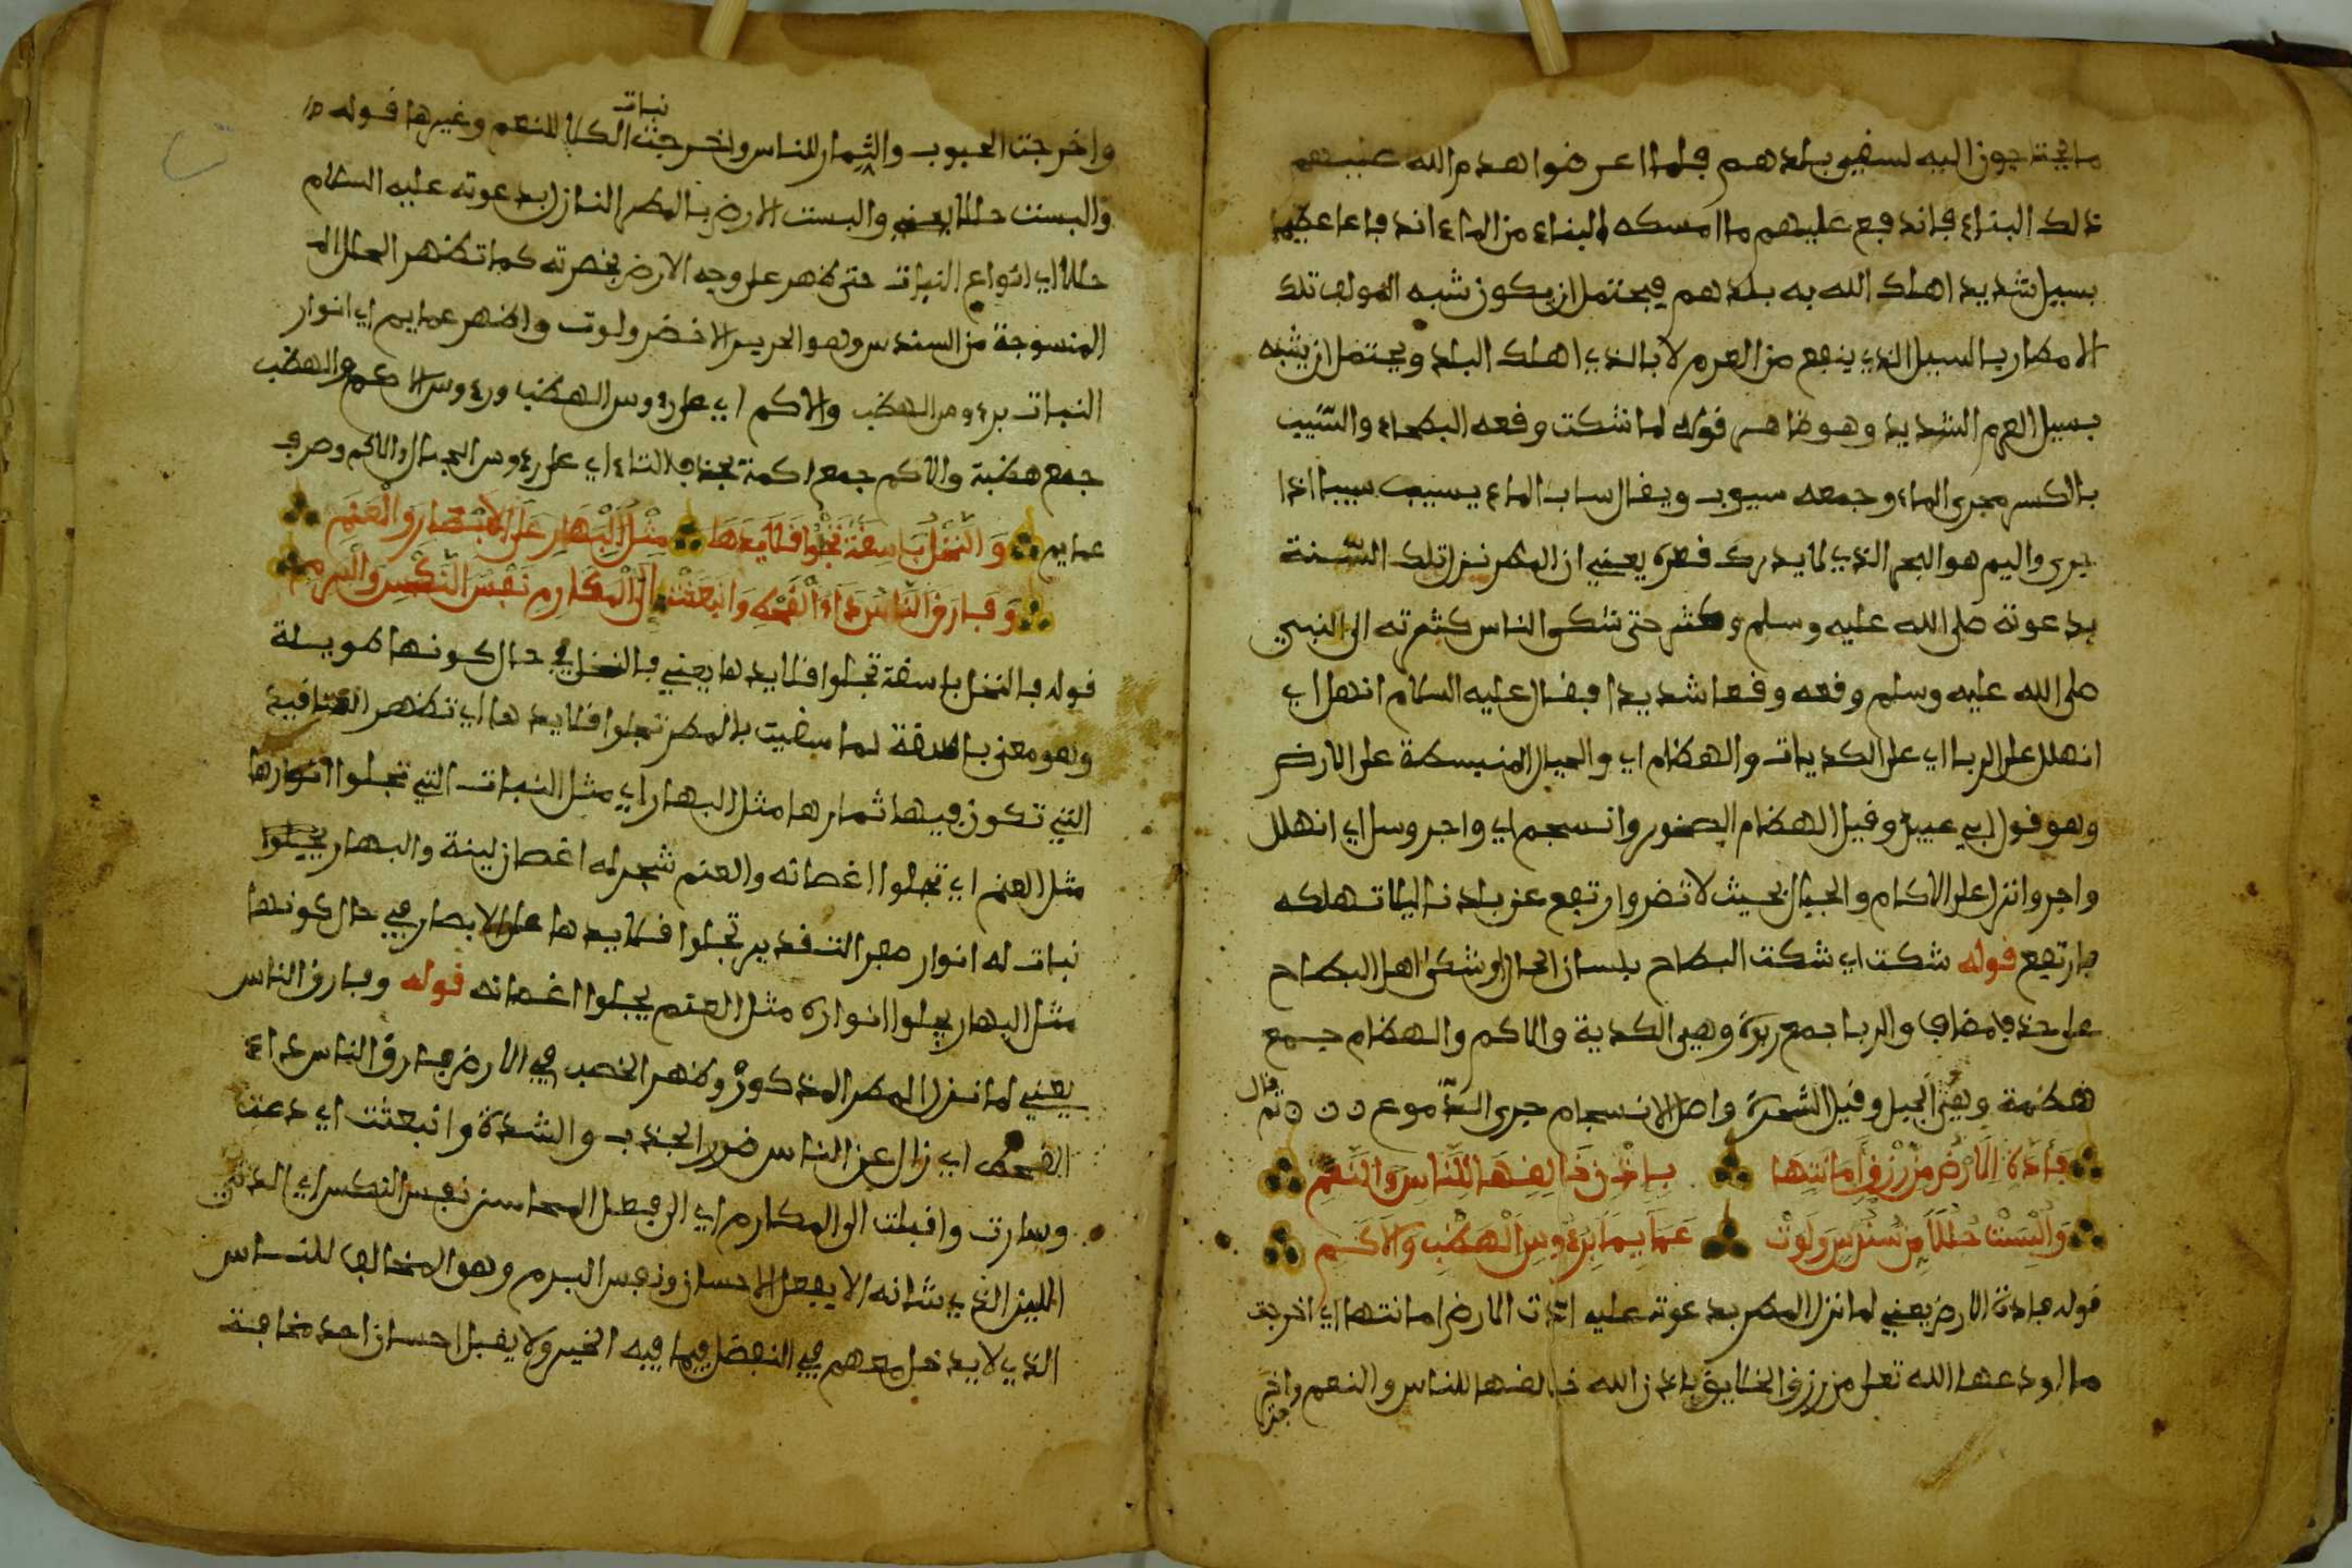 ما يحتاجون اليه لسقي بلدهم فلما اعرضوا هدم الله عنهم
ذلك البناء فاندفع عليهم ما امسكه البناء من الماء اندفاعا عظيما
بسيل شديد اهلك الله به بلدهم فيحتمل ان يكون شبه المولف تلك
الامطار بالسيل الذي ينفع من العرم لا بالذي اهلك البلد ويحتمل ان يشبه
بسيل العرم الشديد وهو ظاهر قوله لما شكت وقعه البطحاء والسيب
بالكسر مجرى الماء وجمعه سيوب ويقال ساب الماء يسيب سيبا اذا
جرى واليم هو البحر الذي لا يدرك قعره يعني ان المطر نزل تلك السنة
بدعوته صلى الله عليه وسلم وكثر حتى شكى الناس كثرته الى النبي
صلى الله عليه وسلم وقعه وقعا شديدا فقال عليه السلام انهل اي
انهلل على الربا اي على الكديات والهضام اي والجبال المنبسطة على الارض
وهو قول ابي عبيد وقيل الهضام الصخور وانسجم اي واجر وسل اي انهلل
واجر وانزل على الاكام والجبال بحيث لا تضر وارتفع عن بلدنا ليلا تهلكه
فارتفع قوله شكت اي شكت البطاح بلسان الحال او شكى اهل البطاح
على حذف مضاف والربا جمع ربوة وهي الكدية والاكم والهضام جمع
هضمة وهي الجبل وقيل الشعرة واصل الانسجام جرى الدموع ثم قال
فأدت الارض من رزق أمانتها باذن خالقها للناس والنعم
وألبست حللا من سندس ولوت عمايما برءوس الهضب والاكم
قوله فادت الارض يعني لما نزل المطر بدعوته عليه ادت الارض امانتها اي اخرجت
ما اودعها الله تعلى من رزق الخلايق باذن الله خالقها للناس والنعم واخر
جت
واخرجت الحبوب والثمار للناس واخرجت نبات الكلا للنعم وغيرها قوله
والبست حللا يعني والبست الارض بالمطر النازل بدعوته عليه السلام
حللا اي انواع النبات حتى ظهر على وجه الارض بخضرته كما تظهر الحلل
المنسوجة من السندس وهو الحرير الاخضر ولوت واظهر عمايم اي انوار
النبات برءوس الهضب والاكم اي على رءوس الهضب ورءوس الاكم والهضب
جمع هضبة والاكم جمع اكمة بحذف التاء اي على رءوس الجبال والاكم وصرف
عمايم والنخل باسقة تجلوا قلايدها مثل البهار على الابصار والعنم
وفارق الناس داء القحط وانبعثت الى المكارم نفس النكس والبرم
قوله فالنخل باسقة تجلوا قلايدها يعني فالنخل في حال كونها طويلة
وهو معنى باسقة لما سقيت بالمطر تجلوا قلايدها اي تظهر العثاقيد
التي تكون فيها ثمارها مثل البهار اي مثل النبات التي تجلوا انوارها
مثل العنم اي تجلوا اغصانه والعنم شجر له اغصان لينة والبهار
نبات له انوار صفر التقدير تجلوا قلايدها على الابصار في حال كونها
مثل البهار يجلوا انواره مثل العنم يجلوا اغصانه قوله وفارق الناس
يعني لما نزل المطر المذكور وظهر الخصب في الارض فارق الناس داء
القحط اي زال عن الناس ضرر الجذب والشدة وانبعثت اي دعت
وسارت واقبلت الى المكارم اي الى فعل المحاسن نفس النكس اي الدني
اللين الذي شانه الا يفعل الاحسان ونفس البرم وهو المخالف للناس
الذي لا يدخل معهم في التفضل فيما فيه الخير ولا يقبل احسان احد مخافة